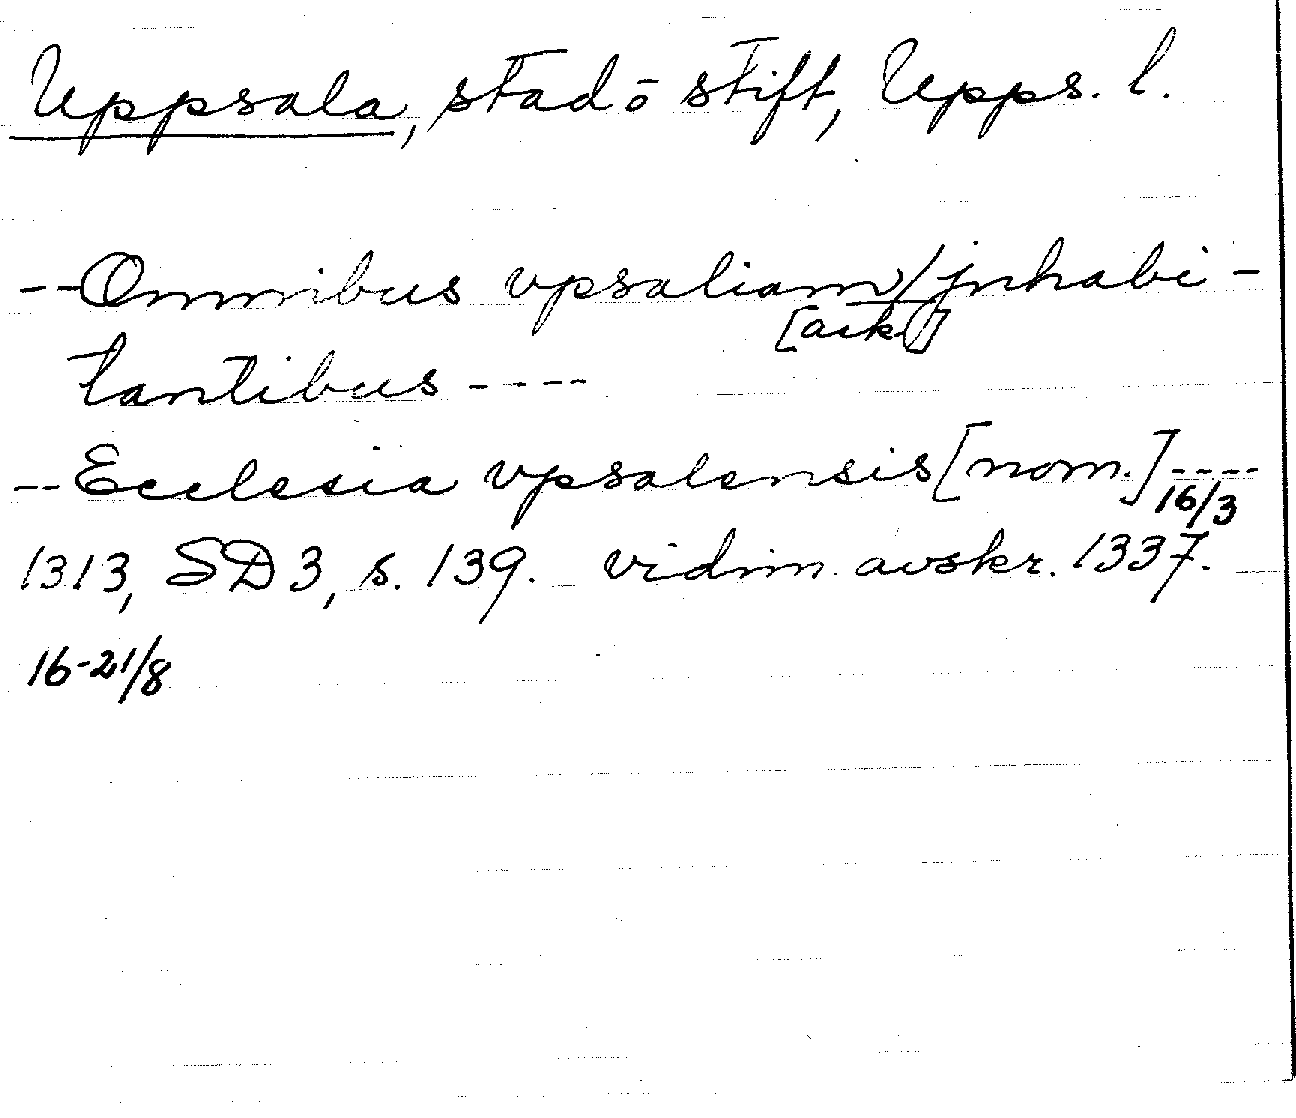 Uppsala, stad o stift, Upps. l.
--Omnibus vpsaliam/jnhabi-
[ack]
tantibus ----
--Ecclesia vpsalensis [nom.] ----
16/3
1313, SD 3, s. 139. vidim. avskr. 1337.
16-21/8